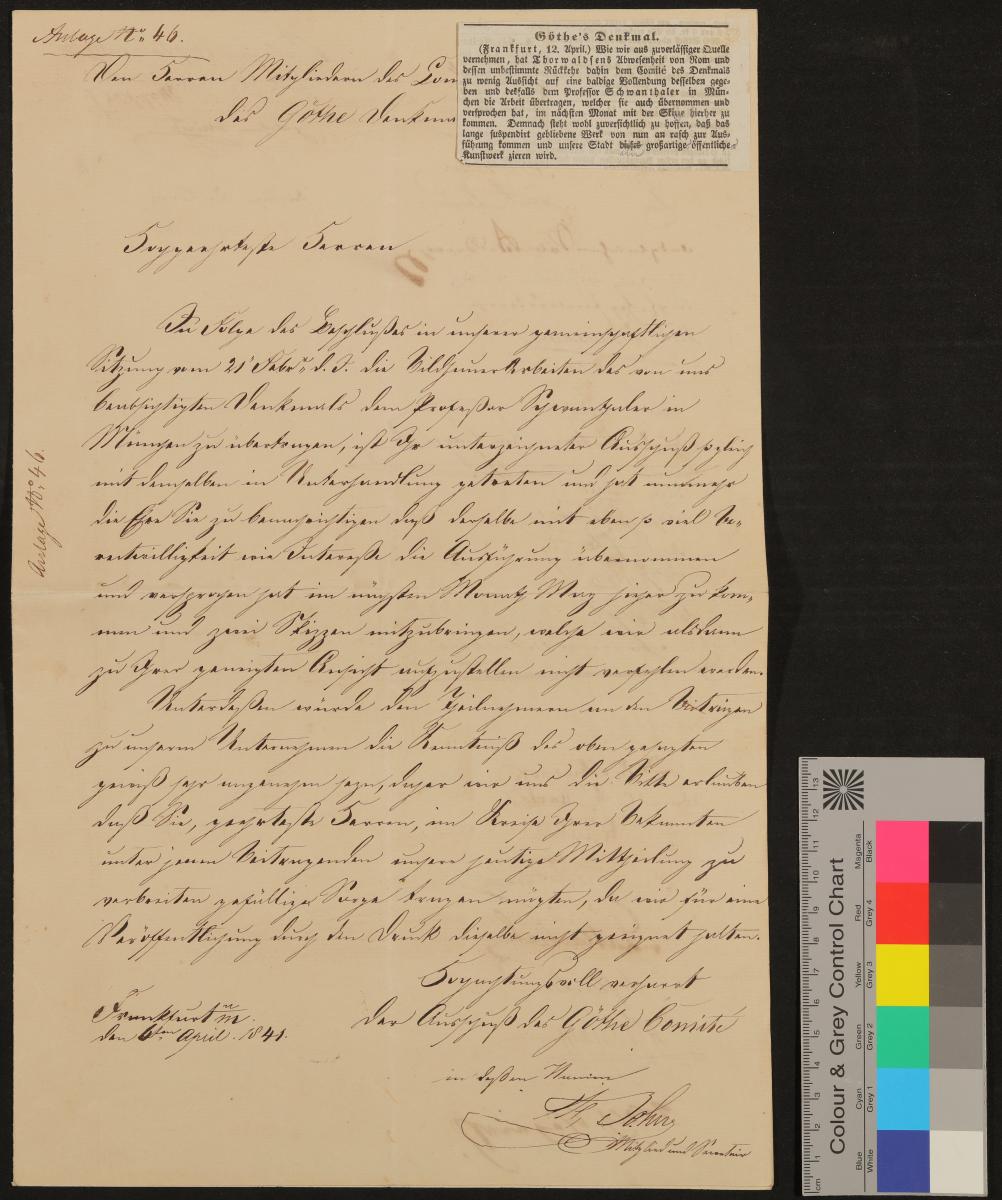 Anlage No 46.
Den Herren Mitgliedern des Com
des Göthe Denkma
Göthe's Denkmal.
(Frankfurt, 12. April.) Wie wir aus zuverlässiger Quelle
vernehmen, hat Thorwaldsens Abwesenheit von Rom und
dessen unbestimmte Rückkehr dahin dem Comité des Denkmals
zu wenig Aussicht auf eine baldige Vollendung desselben gege-
ben und deßfalls dem Professor Schwanthaler in Mün-
chen die Arbeit übertragen, welcher sie auch übernommen und
versprochen hat, im nächsten Monat mit der Skizze hierher zu
kommen. Demnach steht wohl zuversichtlich zu hoffen, daß das
lange suspendirt gebliebene Werk von nun an rasch zur Aus-
führung kommen und unsere Stadt dieses großartige öffentliche
Kunstwerk zieren wird.
Hochgeehrteste Herren
In Folge des Beschlußes in unserer gemeinschaftlichen
Sitzung vom 21 Febr. d. J. die Bildhauer Arbeiten des von uns
beabsichtigten Denkmals dem Profeßor Schwanthaler in
München zu übertragen, ist Ihr unterzeichneter Ausschuß sogleich
mit demselben in Unterhandlung getreten und hat nunmehr
die Ehre Sie zu benachrichtigen daß derselbe mit eben so viel Be-
reitwilligkeit wie Intereße die Ausführung übernommen
und versprochen hat im nächsten Monath May hieher zu kom-
men und zwei Skizzen mitzubringen, welche wir alsdann
zu Ihrer geneigten Ansicht aufzustellen nicht verfehlen werden.
Unterdeßen würde den Theilnehmern an den Beiträgen
zu unserm Unternehmen die Kenntniß des oben gesagten
gewiß sehr angenehm seyn, daher wir uns die Bitte erlauben
daß Sie, geehrteste Herren, im Kreise Ihrer Bekannten
unter jenen Beitragenden unsere heutige Mittheilung zu
verbreiten gefällige Sorge tragen mögten, da wir für eine
Veröffentlichung durch den Druck dieselbe nicht geeignet halten.
Hochachtungsvoll verharrt
Der Ausschuß des Göthe Comité
Frankfurt a/M.
den 6ten April. 1841.
in deßen Namen
Mitglied und Secretair
Anlage No. 46.
Colour & Grey Control Chart
Blue Cyan Green Yellow Red Magenta
White Grey 1 Grey 2 Grey 3 Grey 4 Black
cm 1 2 3 4 5 6 7 8 9 10 11 12 13